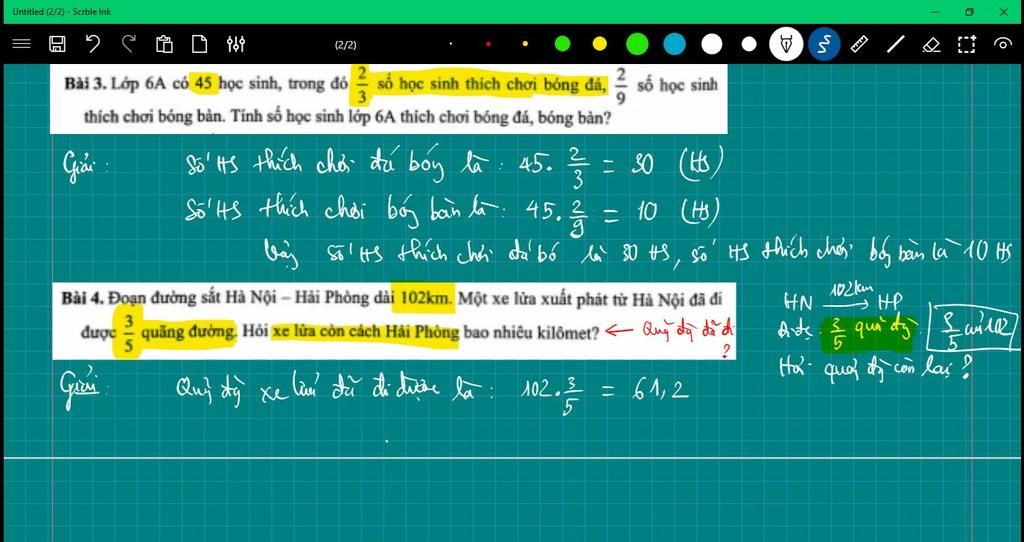 Untitled (2/2) - Scrble Ink
(2/2)
Bài 3. Lớp 6A có 45 học sinh, trong đó 2/3 số học sinh thích chơi bóng đá, 2/9 số học sinh
thích chơi bóng bàn. Tính số học sinh lớp 6A thích chơi bóng đá, bóng bàn?
Giải: Số HS thích chơi đá bóg là: 45. 2/3 = 30 (HS)
Số HS thích chơi bóg bàn là: 45. 2/9 = 10 (HS)
Vậy số HS thích chơi đá bó là 30 HS, số HS thích chơi bóg bàn là 10 HS
Bài 4. Đoạn đường sắt Hà Nội – Hải Phòng dài 102km. Một xe lửa xuất phát từ Hà Nội đã đi
được 3/5 quãng đường. Hỏi xe lửa còn cách Hải Phòng bao nhiêu kilômet? ← Quãg đg đã đi
?
HN 102km → HP
Đi đc: 3/5 quãg đg 3/5 của 102
Hỏi: quãg đg còn lại?
Giải: Quãg đg xe lửa đã đi được là: 102. 3/5 = 61,2